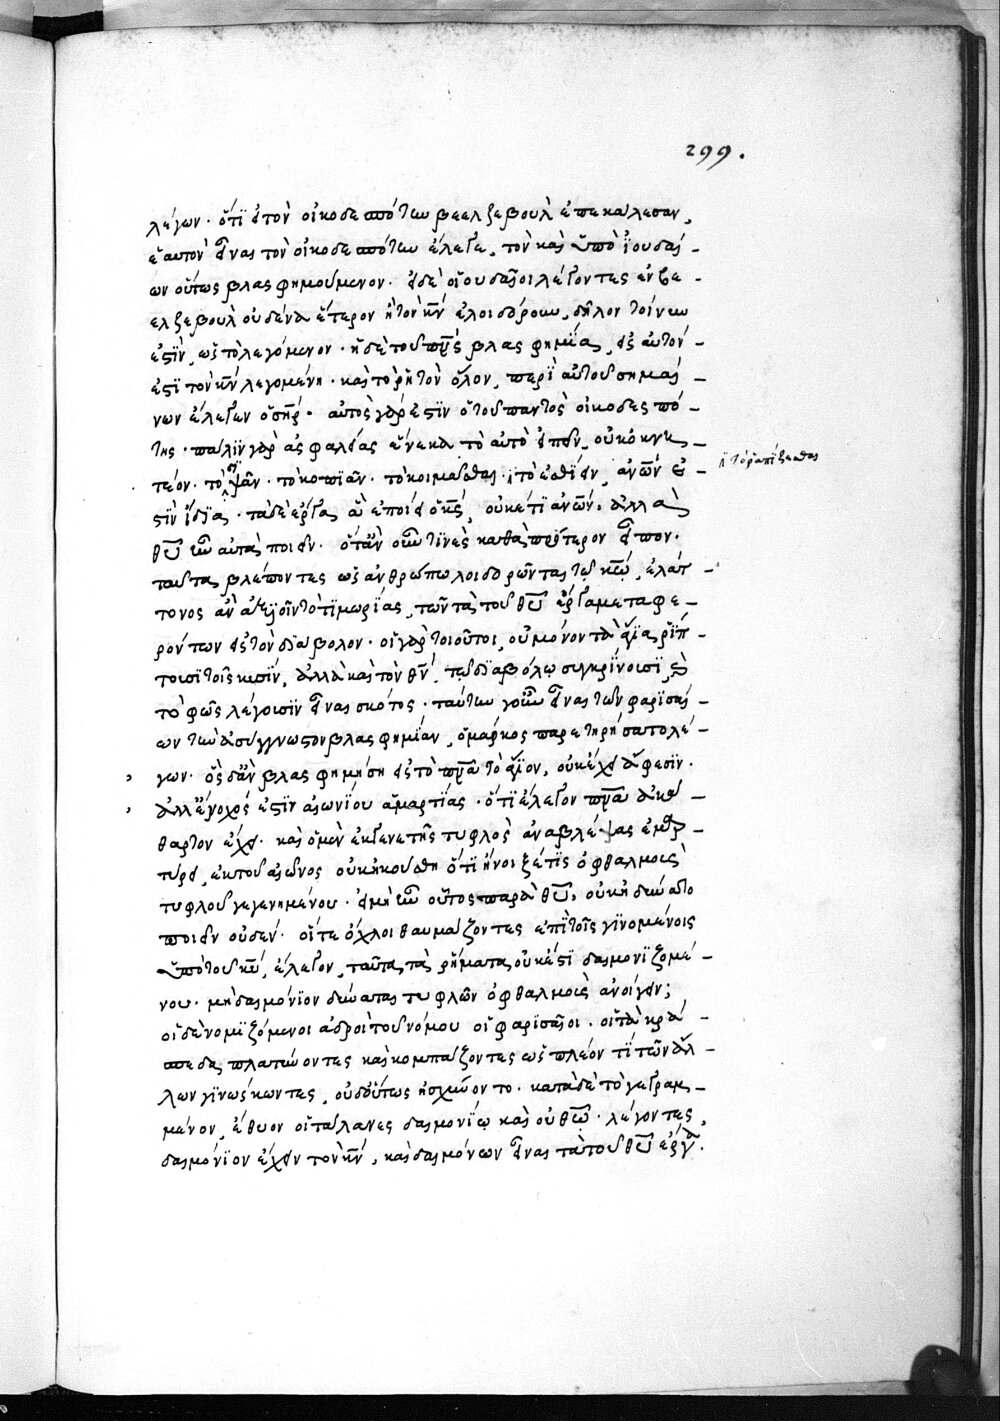 299.
λέγων· ὅτι εἰ τὸν οἰκοδεσπότην βεελζεβοὺλ ἐπεκάλεσαν,
ἑαυτὸν εἶναι τὸν οἰκοδεσπότην ἔλεγε, τὸν καὶ ὑπὸ ἰουδαί-
ων οὕτως βλασφημούμενον. εἰ δὲ οἱ ἰουδαῖοι λέγοντες ἐν βε-
ελζεβοὺλ οὐδένα ἕτερον ἢ τὸν κ̅ν̅ ἐλοιδόρουν, δῆλον τοίνυν
ἐστὶν, ὡς τὸ λεγόμενον· ἡ δὲ τοῦ π̅ν̅ς̅ βλασφημία, εἰς αὐτόν
ἐστι τὸν κ̅ν̅ λεγομένη· καὶ τὸ ῥητὸν ὅλον, περὶ αὐτοῦ σημαί-
νων ἔλεγεν ὁ σ̅η̅ρ̅· αὐτὸς γάρ ἐστιν ὁ τοῦ παντὸς οἰκοδεσπό-
της· πάλιν γὰρ ἀσφαλείας ἕνεκα τὸ αὐτὸ εἰπεῖν, οὐκ ὀκνη-
τέον· τὸ πεινᾶν· τὸ κοπιᾶν· τὸ κοιμᾶσθαι· τὸ ἐσθίειν, ἀν̅ω̅ν̅ ἐ-
στὶν ἴδια· τὰ δὲ ἔργα, ἃ ἐποίει ὁ κ̅ς̅, οὐκέτι ἀν̅ω̅ν̅, ἀλλὰ
θ̅υ̅ ἦν αὐτὰ ποιεῖν. ὅταν οὖν τινὲς καθὰ πρότερον εἶπον·
ταῦτα βλέποντες ὡς ἀνθρώπῳ λοιδορῶνται τῷ κ̅ω̅, ἐλάτ-
τονος ἂν τιμωρίας, τῶν τὰ τοῦ θ̅υ̅ ἔργα μεταφε-
ρόντων εἰς τὸν διάβολον· οἱ γὰρ τοιοῦτοι, οὐ μόνον τὰ ἅγια ῥίπ-
τουσι τοῖς κυσὶν, ἀλλὰ καὶ τὸν θ̅ν̅, τῷ διαβόλῳ συγκρίνουσι, καὶ
τὸ φῶς λέγουσιν εἶναι σκότος· ταύτην γοῦν εἶναι τῶν φαρισαί-
ων τὴν ἀσύγγνωστον βλασφημίαν, ὁ μάρκος παρετηρήσατο λέ-
γων· ὃς δ' ἂν βλασφημήσῃ εἰς τὸ π̅ν̅α̅ τὸ ἅγιον, οὐκ ἔχει ἄφεσιν·
ἀλλ' ἔνοχός ἐστιν αἰωνίου ἁμαρτίας· ὅτι ἔλεγον π̅ν̅α̅ ἀκά-
θαρτον ἔχει· καὶ ὁ μὲν ἐκ γενετῆς τυφλὸς ἀναβλέψας ἐμαρ-
τύρει, ἐκ τοῦ αἰῶνος οὐκ ἠκούσθη ὅτι ἤνοιξέ τις ὀφθαλμοὺς
τυφλοῦ γεγενημένου· εἰ μὴ ἦν οὗτος παρὰ θ̅υ̅, οὐκ ἠδύνατο
ποιεῖν οὐδέν· οἵ τε ὄχλοι θαυμάζοντες ἐπὶ τοῖς γινομένοις
ὑπὸ τοῦ κ̅υ̅, ἔλεγον, ταῦτα τὰ ῥήματα, οὐκ ἔστι δαιμονιζομέ-
νου· μὴ δαιμόνιον δύναται τυφλῶν ὀφθαλμοὺς ἀνοίγειν;
οἱ δὲ νομιζόμενοι ἁδροὶ τοῦ νόμου οἱ φαρισαῖοι· οἱ τὰ κρά-
σπεδα πλατύνοντες καὶ κομπάζοντες ὡς πλέον τι τῶν ἄλ-
λων γινώσκοντες, οὐδ' οὕτως ᾐσχύνοντο· κατὰ δὲ τὸ γεγραμ-
μένον, ἔθυον οἱ τάλανες δαιμονίῳ καὶ οὐ θ̅ω̅· λέγοντες,
δαιμόνιον ἔχειν τὸν κ̅ν̅, καὶ δαιμόνων εἶναι τὰ τοῦ θ̅υ̅ ἔργα.